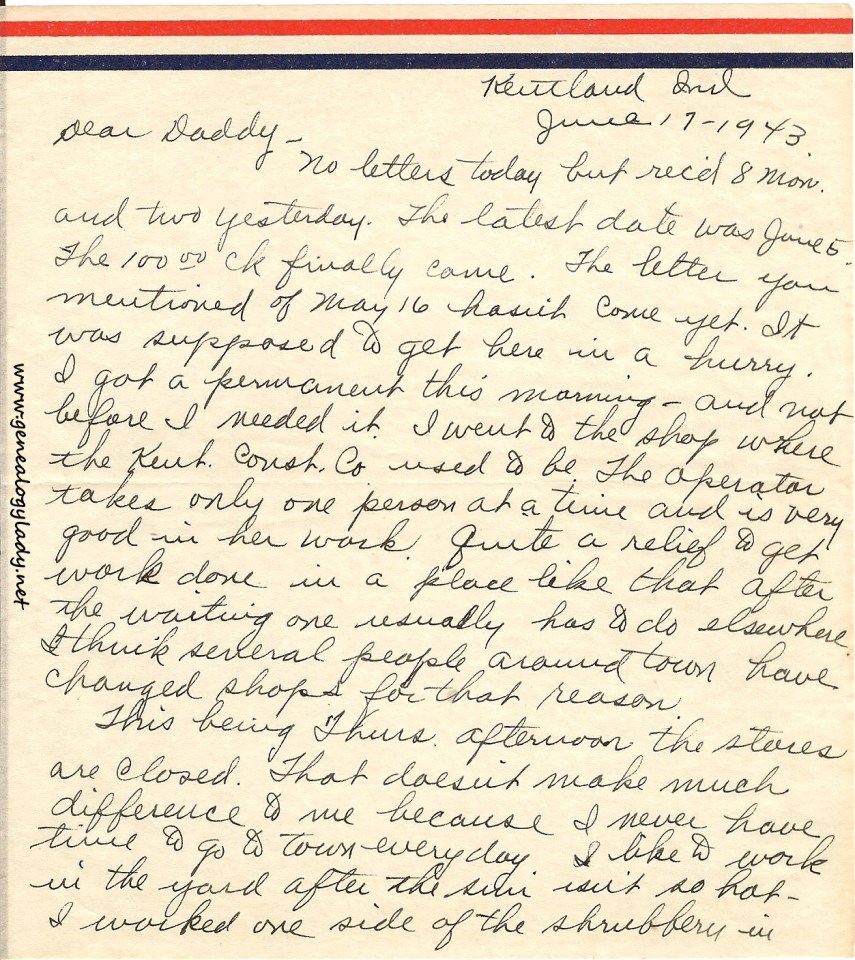 Kentland Ind
June 17-1943
Dear Daddy -
No letters today but rec'd 8 Mon.
and two yesterday. The latest date was June 5.
The 100 00 ck finally came. The letter you
mentioned of May 16 hasn't come yet. It
was supposed to get here in a hurry.
I got a permanent this morning - and not
before I needed it. I went to the shop where
the Kent. Const. Co used to be. The operator
takes only one person at a time and is very
good in her work. Quite a relief to get
work done in a place like that after
the waiting one usually has to do elsewhere.
I think several people around town have
changed shops for that reason.
This being Thurs. afternoon the stores
are closed. That doesn't make much
difference to me because I never have
time to go to town everyday. I like to work
in the yard after the sun isn't so hot -
I worked one side of the shrubbery in
www.genealogylady.net